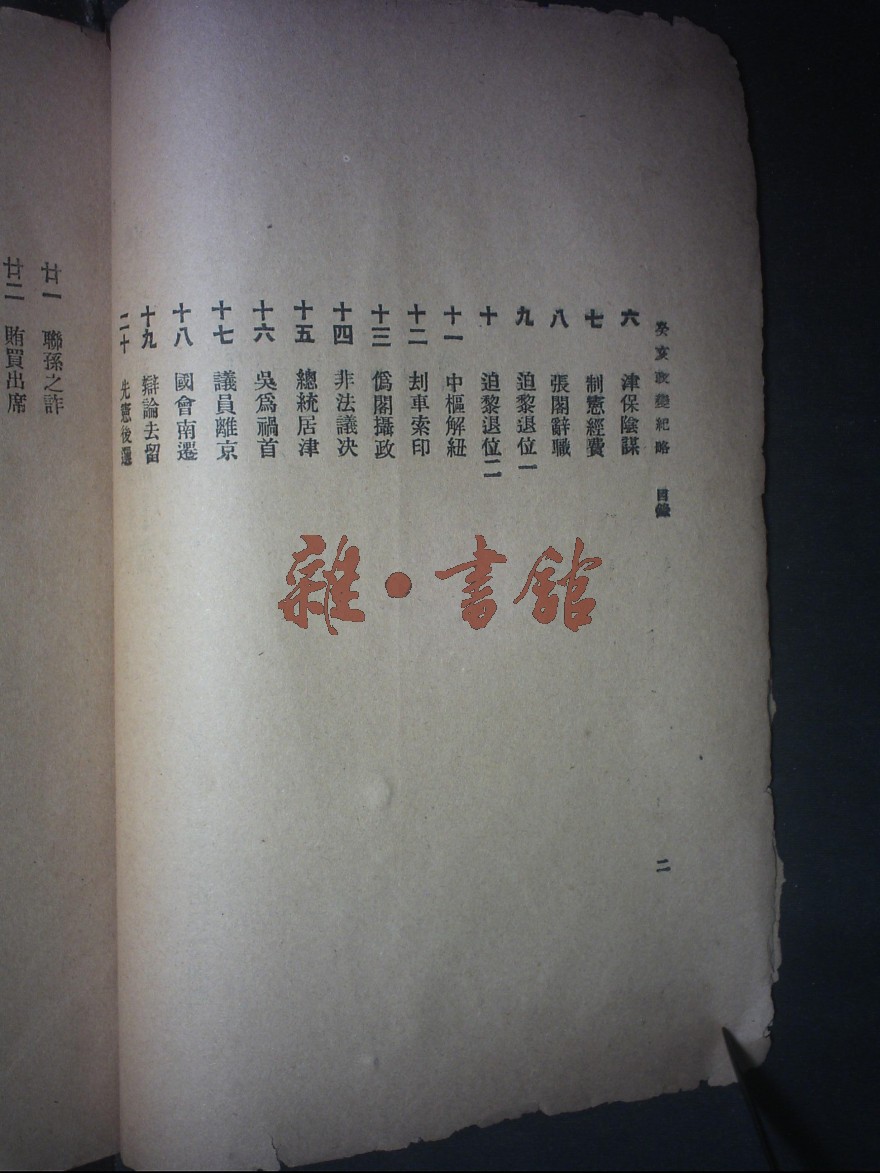 癸亥政變紀略 目錄 二
六 津保陰謀
七 制憲經費
八 張閣辭職
九 迫黎退位一
十 迫黎退位二
十一 中樞解紐
十二 刦車索印
十三 僞閣攝政
十四 非法議决
十五 總統居津
十六 吳爲禍首
十七 議員離京
十八 國會南遷
十九 辯論去留
二十 先憲後選
廿一 聯孫之詐
廿二 賄買出席
雜·書館